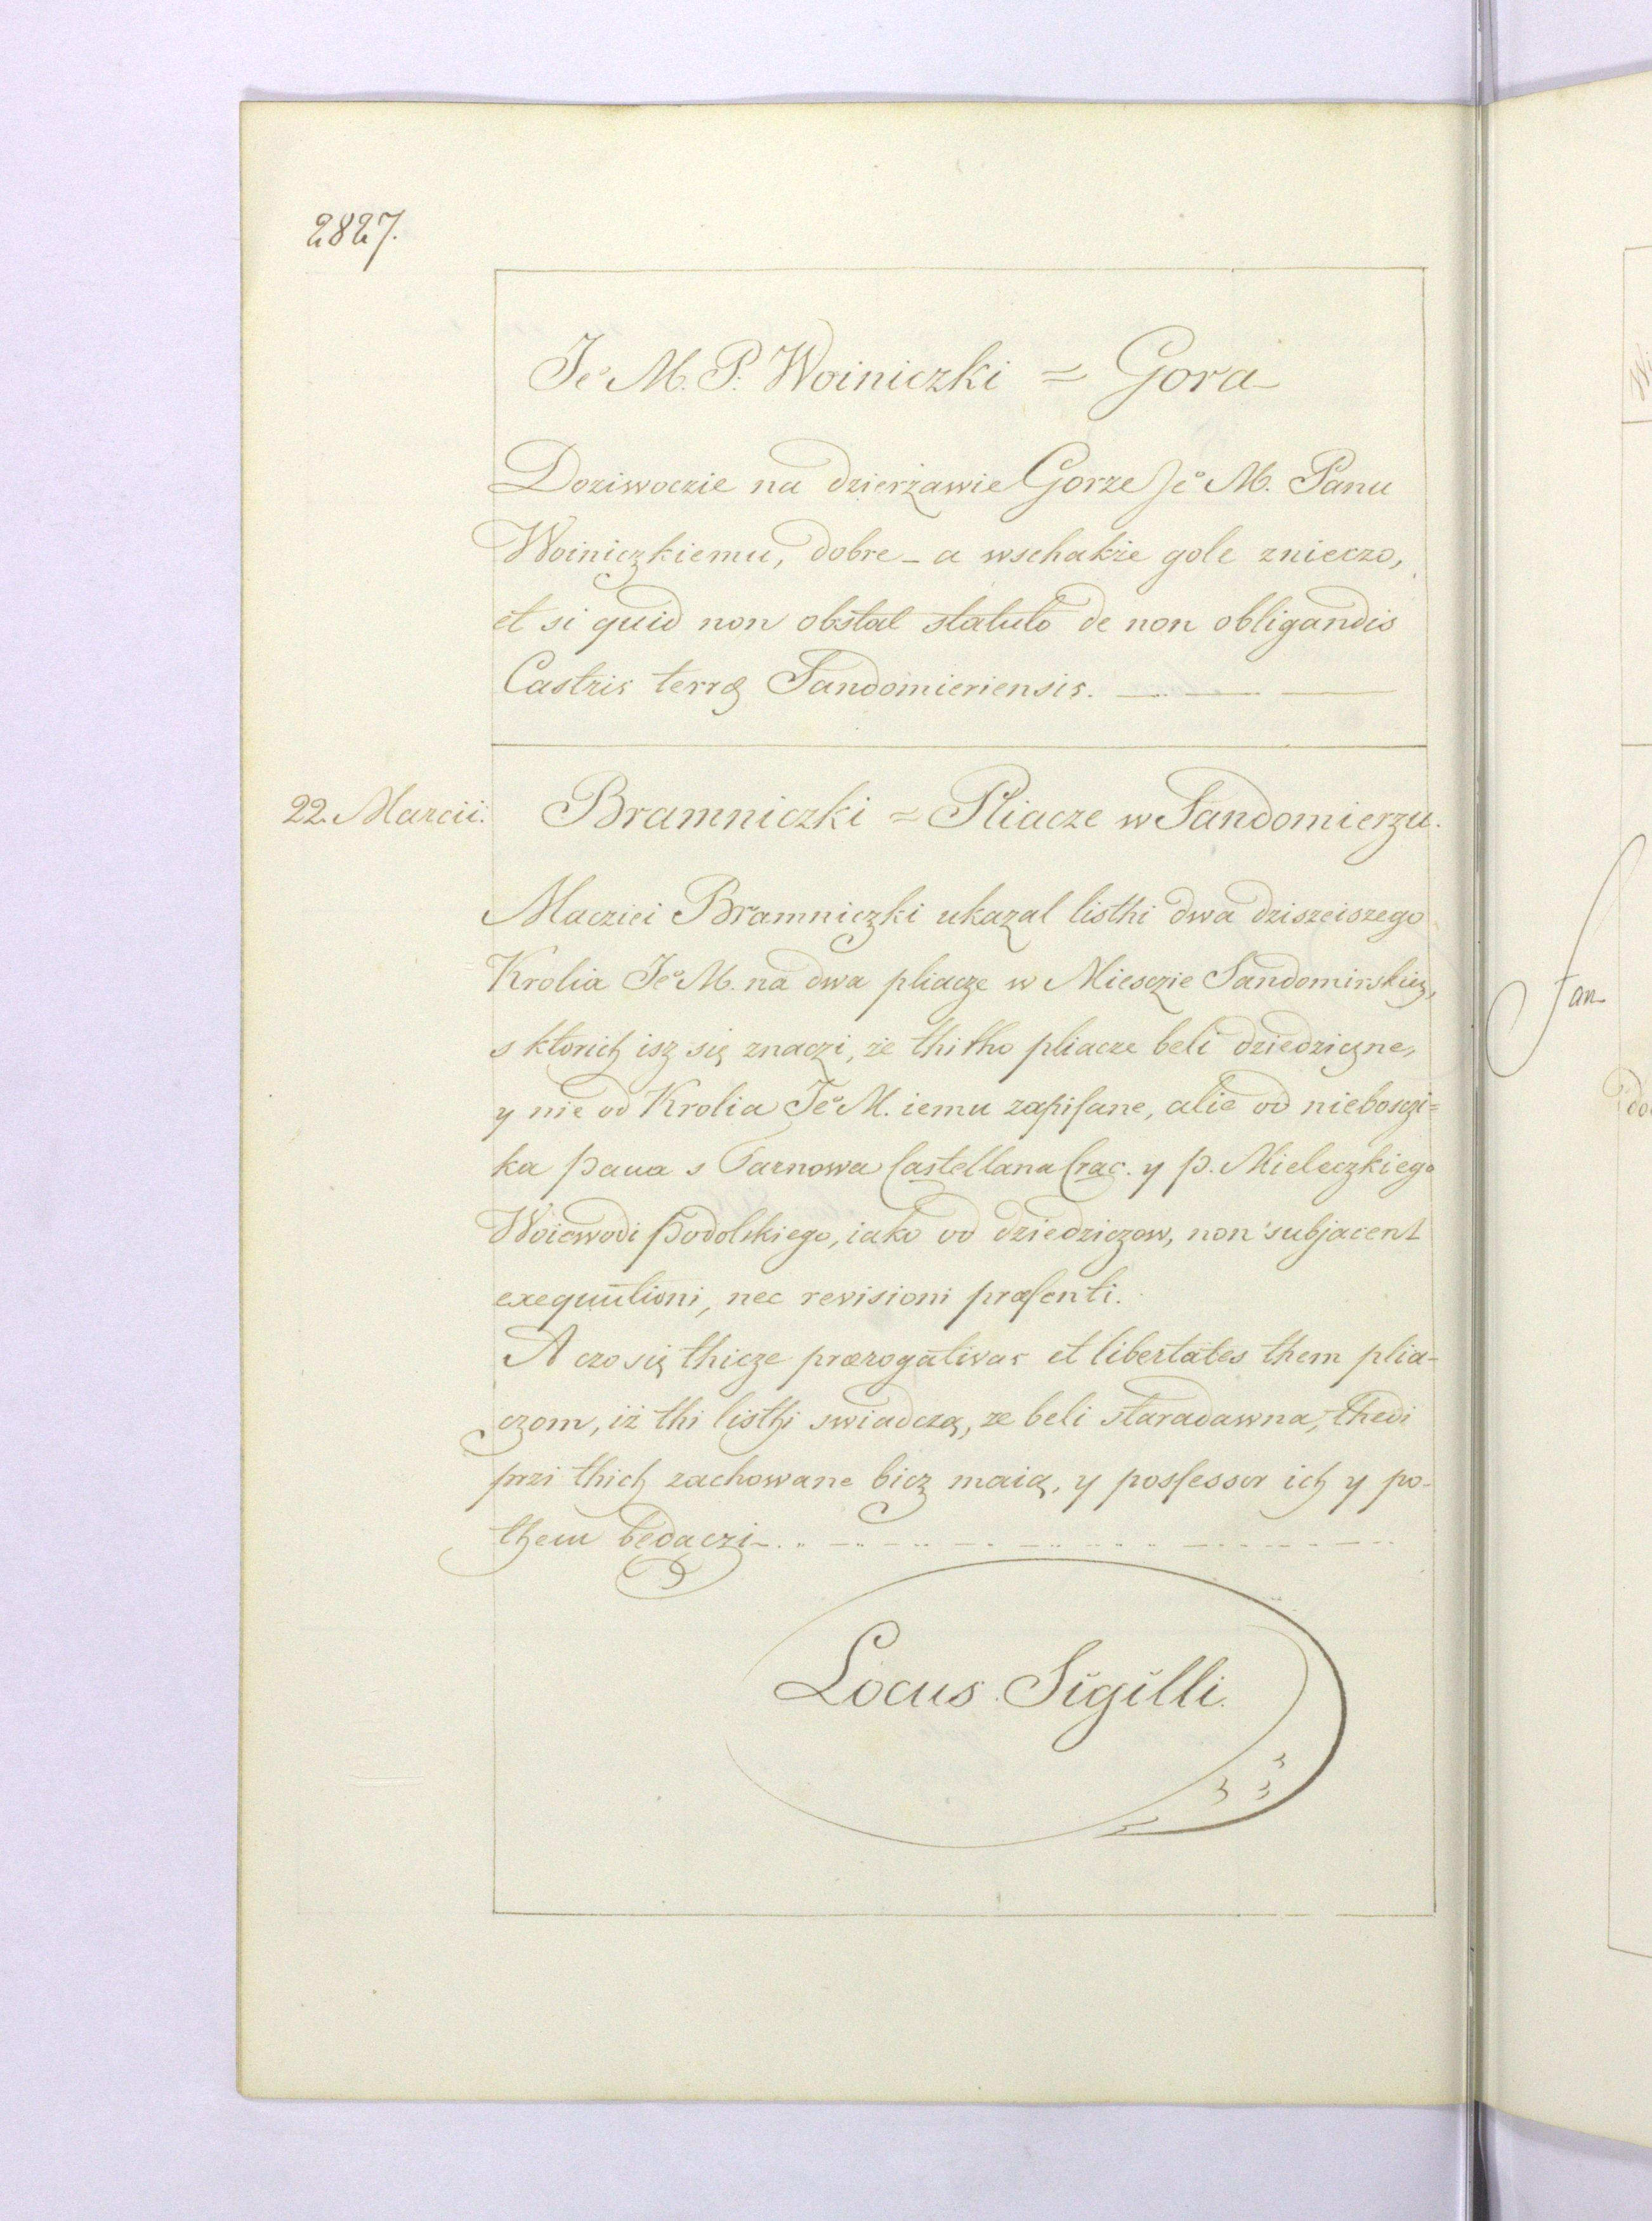 2827.
Je° M. P. Woiniczki = Gora
Doziwoczie na dzierżawie Gorze Je° M. Panu
Woiniczkiemu, dobre – a wschakże gole znieczo,
et si quid non obstat statuto de non obligandis
Castris terræ Sandomieriensis.
22. Marcii. Bramniczki = Pliacze w Sandomierzu.
Macziei Bramniczki ukazal listhi dwa dziszeiszego
Krolia Je° M. na dwa pliacze w Miesczie Sandomirskiey,
s ktorich isz się znaczi, że thitho pliacze beli dziedziczne,
y nie od Krolia Je° M. iemu zapisane, alie od niebosczi=
ka pana s Tarnowa Castellana Crac. y p. Mieleczkiego
Woiewodi podolskiego, iako od dziedziczow, non subjacent
exequutioni, nec revisioni præsenti.
A czo się thicze prærogativas et libertates them plia-
czom, iż thi listhi swiadczą, ze beli staradawna, thedi
przi thich zachowane bicz maią, y possessor ich y po-
them bedaczi
Locus Sigilli.
Jan